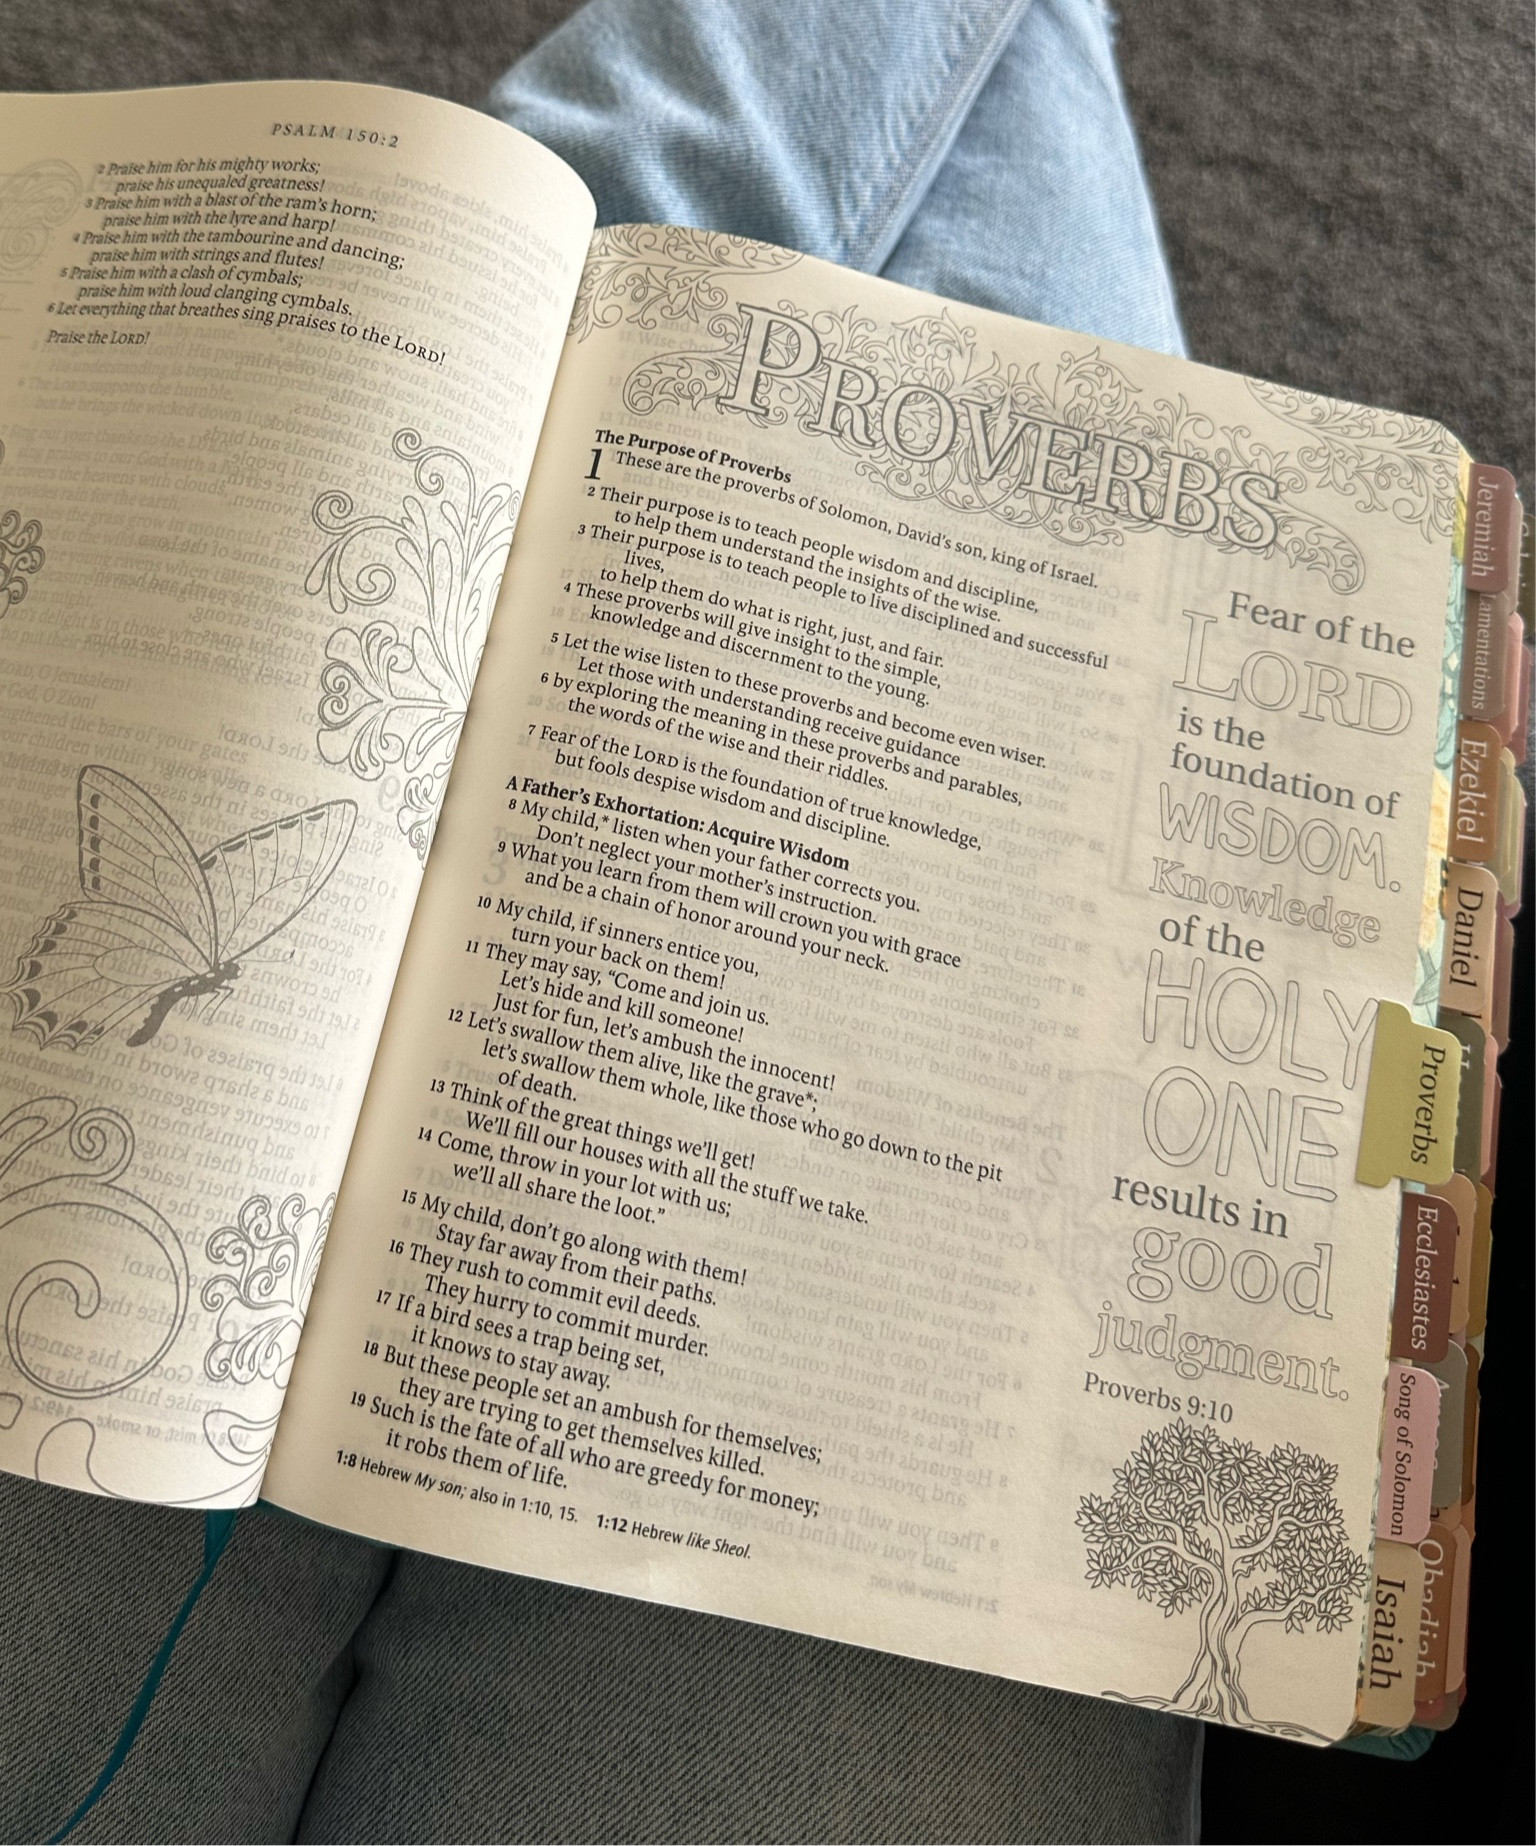 PSALM 150:2
2 Praise him for his mighty works;
praise his unequaled greatness!
3 Praise him with a blast of the ram's horn;
praise him with the lyre and harp!
4 Praise him with the tambourine and dancing;
praise him with strings and flutes!
5 Praise him with a clash of cymbals;
praise him with loud clanging cymbals.
6 Let everything that breathes sing praises to the LORD!
Praise the LORD!
PROVERBS
The Purpose of Proverbs
1 These are the proverbs of Solomon, David's son, king of Israel.
2 Their purpose is to teach people wisdom and discipline,
to help them understand the insights of the wise.
3 Their purpose is to teach people to live disciplined and successful
lives,
to help them do what is right, just, and fair.
4 These proverbs will give insight to the simple,
knowledge and discernment to the young.
5 Let the wise listen to these proverbs and become even wiser.
Let those with understanding receive guidance
6 by exploring the meaning in these proverbs and parables,
the words of the wise and their riddles.
7 Fear of the LORD is the foundation of true knowledge,
but fools despise wisdom and discipline.
A Father's Exhortation: Acquire Wisdom
8 My child,* listen when your father corrects you.
Don't neglect your mother's instruction.
9 What you learn from them will crown you with grace
and be a chain of honor around your neck.
10 My child, if sinners entice you,
turn your back on them!
11 They may say, “Come and join us.
Let's hide and kill someone!
Just for fun, let's ambush the innocent!
12 Let's swallow them alive, like the grave*;
let's swallow them whole, like those who go down to the pit
of death.
13 Think of the great things we'll get!
We'll fill our houses with all the stuff we take.
14 Come, throw in your lot with us;
we'll all share the loot.”
15 My child, don't go along with them!
Stay far away from their paths.
16 They rush to commit evil deeds.
They hurry to commit murder.
17 If a bird sees a trap being set,
it knows to stay away.
18 But these people set an ambush for themselves;
they are trying to get themselves killed.
19 Such is the fate of all who are greedy for money;
it robs them of life.
1:8 Hebrew My son; also in 1:10, 15. 1:12 Hebrew like Sheol.
Fear of the
LORD
is the
foundation of
WISDOM.
Knowledge
of the
HOLY
ONE
results in
good
judgment.
Proverbs 9:10
Jeremiah
Lamentations
Ezekiel
Daniel
Proverbs
Ecclesiastes
Song of Solomon
Obadiah
Isaiah